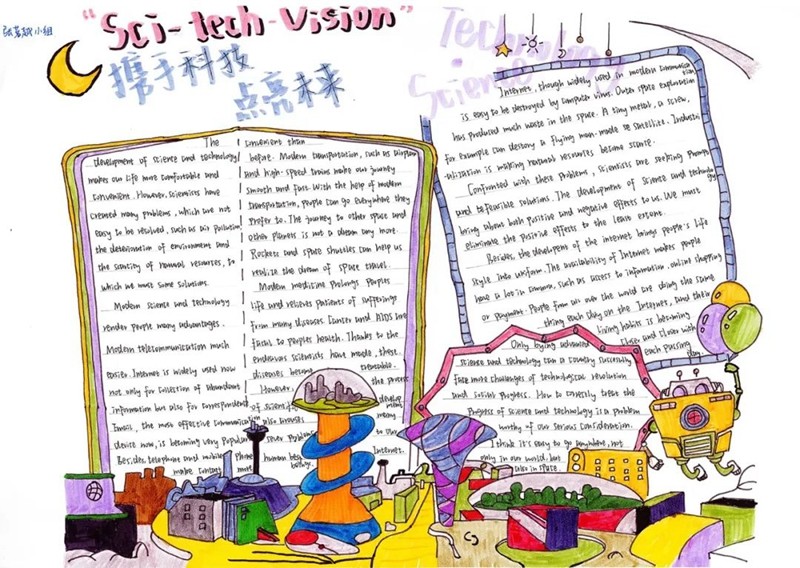 "Sci-tech-Vision"
携手科技
点亮未来
Technology
Science
The
development of science and technology
makes our life more comfortable and
convenient. However, scientists have
created many problems, which are not
easy to be resolved, such as air pollution,
the deterioration of environment and
the scarcity of natural resources, to
which we must some solutions.
Modern science and technology
render people many advantages.
Modern telecommunication much
easier. Internet is widely used now
not only for collection of abundant
information but also for correspondence
Email, the most effective communication
device now, is becoming very popular
Besides, telephone and mobile phone
make contact more
convenient than
before. Modern transportation, such as airplane
and high-speed trains make our journey
smooth and fast. With the help of modern
transportation, people can go everywhere they
prefer to. The journey to other space and
other planets is not a dream any more.
Rockets and space shuttles can help us
realize the dream of space travel.
Modern medicine prolongs peoples
life and relieves patients of sufferings
from many diseases. Cancer and AIDS are
fatal to people's health. Thanks to the
endeavors scientists have made, these
diseases become treatable.
However, the process
of scientific develop
also arouses many
sever problems to our
human beings. Internet.
Internet, though widely used in modern communication
is easy to be destroyed by computer virus. Outer space exploration
has produced much waste in the space. A tiny metal, a screw,
for example can destroy a flying man-made satellite. Industri
alization is making natural resources become scarce.
Confronted with these problems, scientists are seeking prompt
and feasible solutions. The development of science and technology
bring about both positive and negative effects to us. We must
eliminate the positive effects to the least extent.
Besides, the developent of the internet brings people's life
style into uniform. The availability of Internet makes people
have a lot in common, such as access to information, online shopping
or payment. People from all over the world are doing the same
thing each day on the Internet, and their
living habits is becoming
closer and closer with
each passing
day.
Only bying advanced
science and technology can a country successfully
face more challenges of technological revolution
and social progress. How to correctly treat the
progress of science and technology is a problem
worthy of our serious consideration.
I think it's easy to go anywhere, not
only in our world, but
also in space.